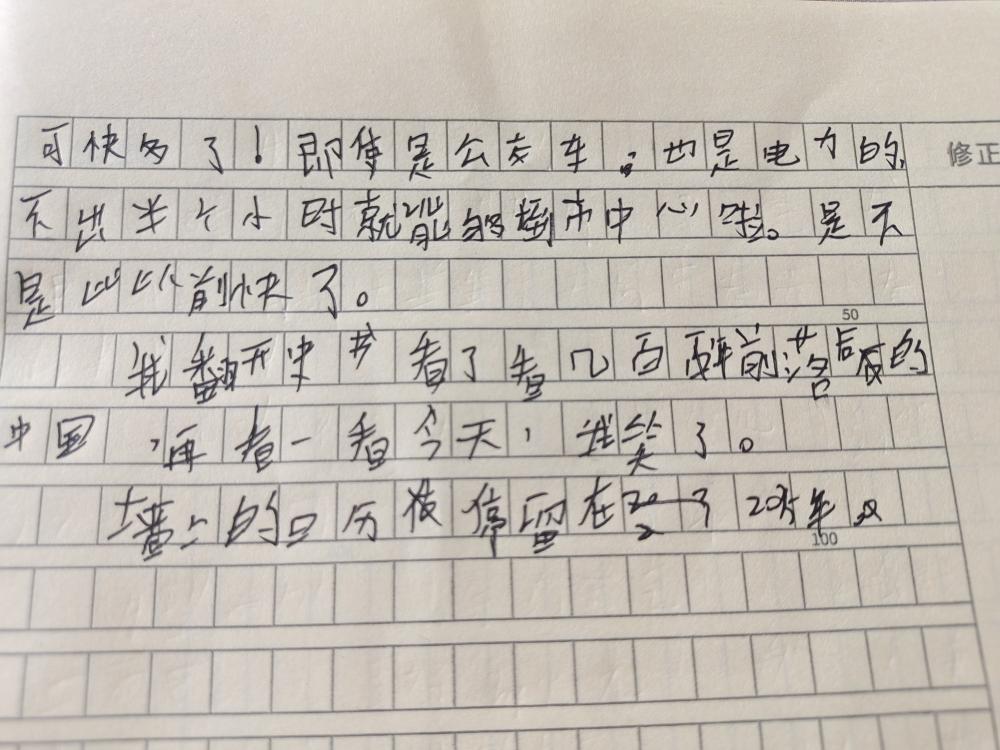 可快多了！即使是公交车，也是电力的，
不出半个小时就能够到市中心啦。是不
是比以前快了。
50
我翻开史书看了看几百年前落后的
中国，再看一看今天，我笑了。
墙上的日历被停留在了20年。
100
修正